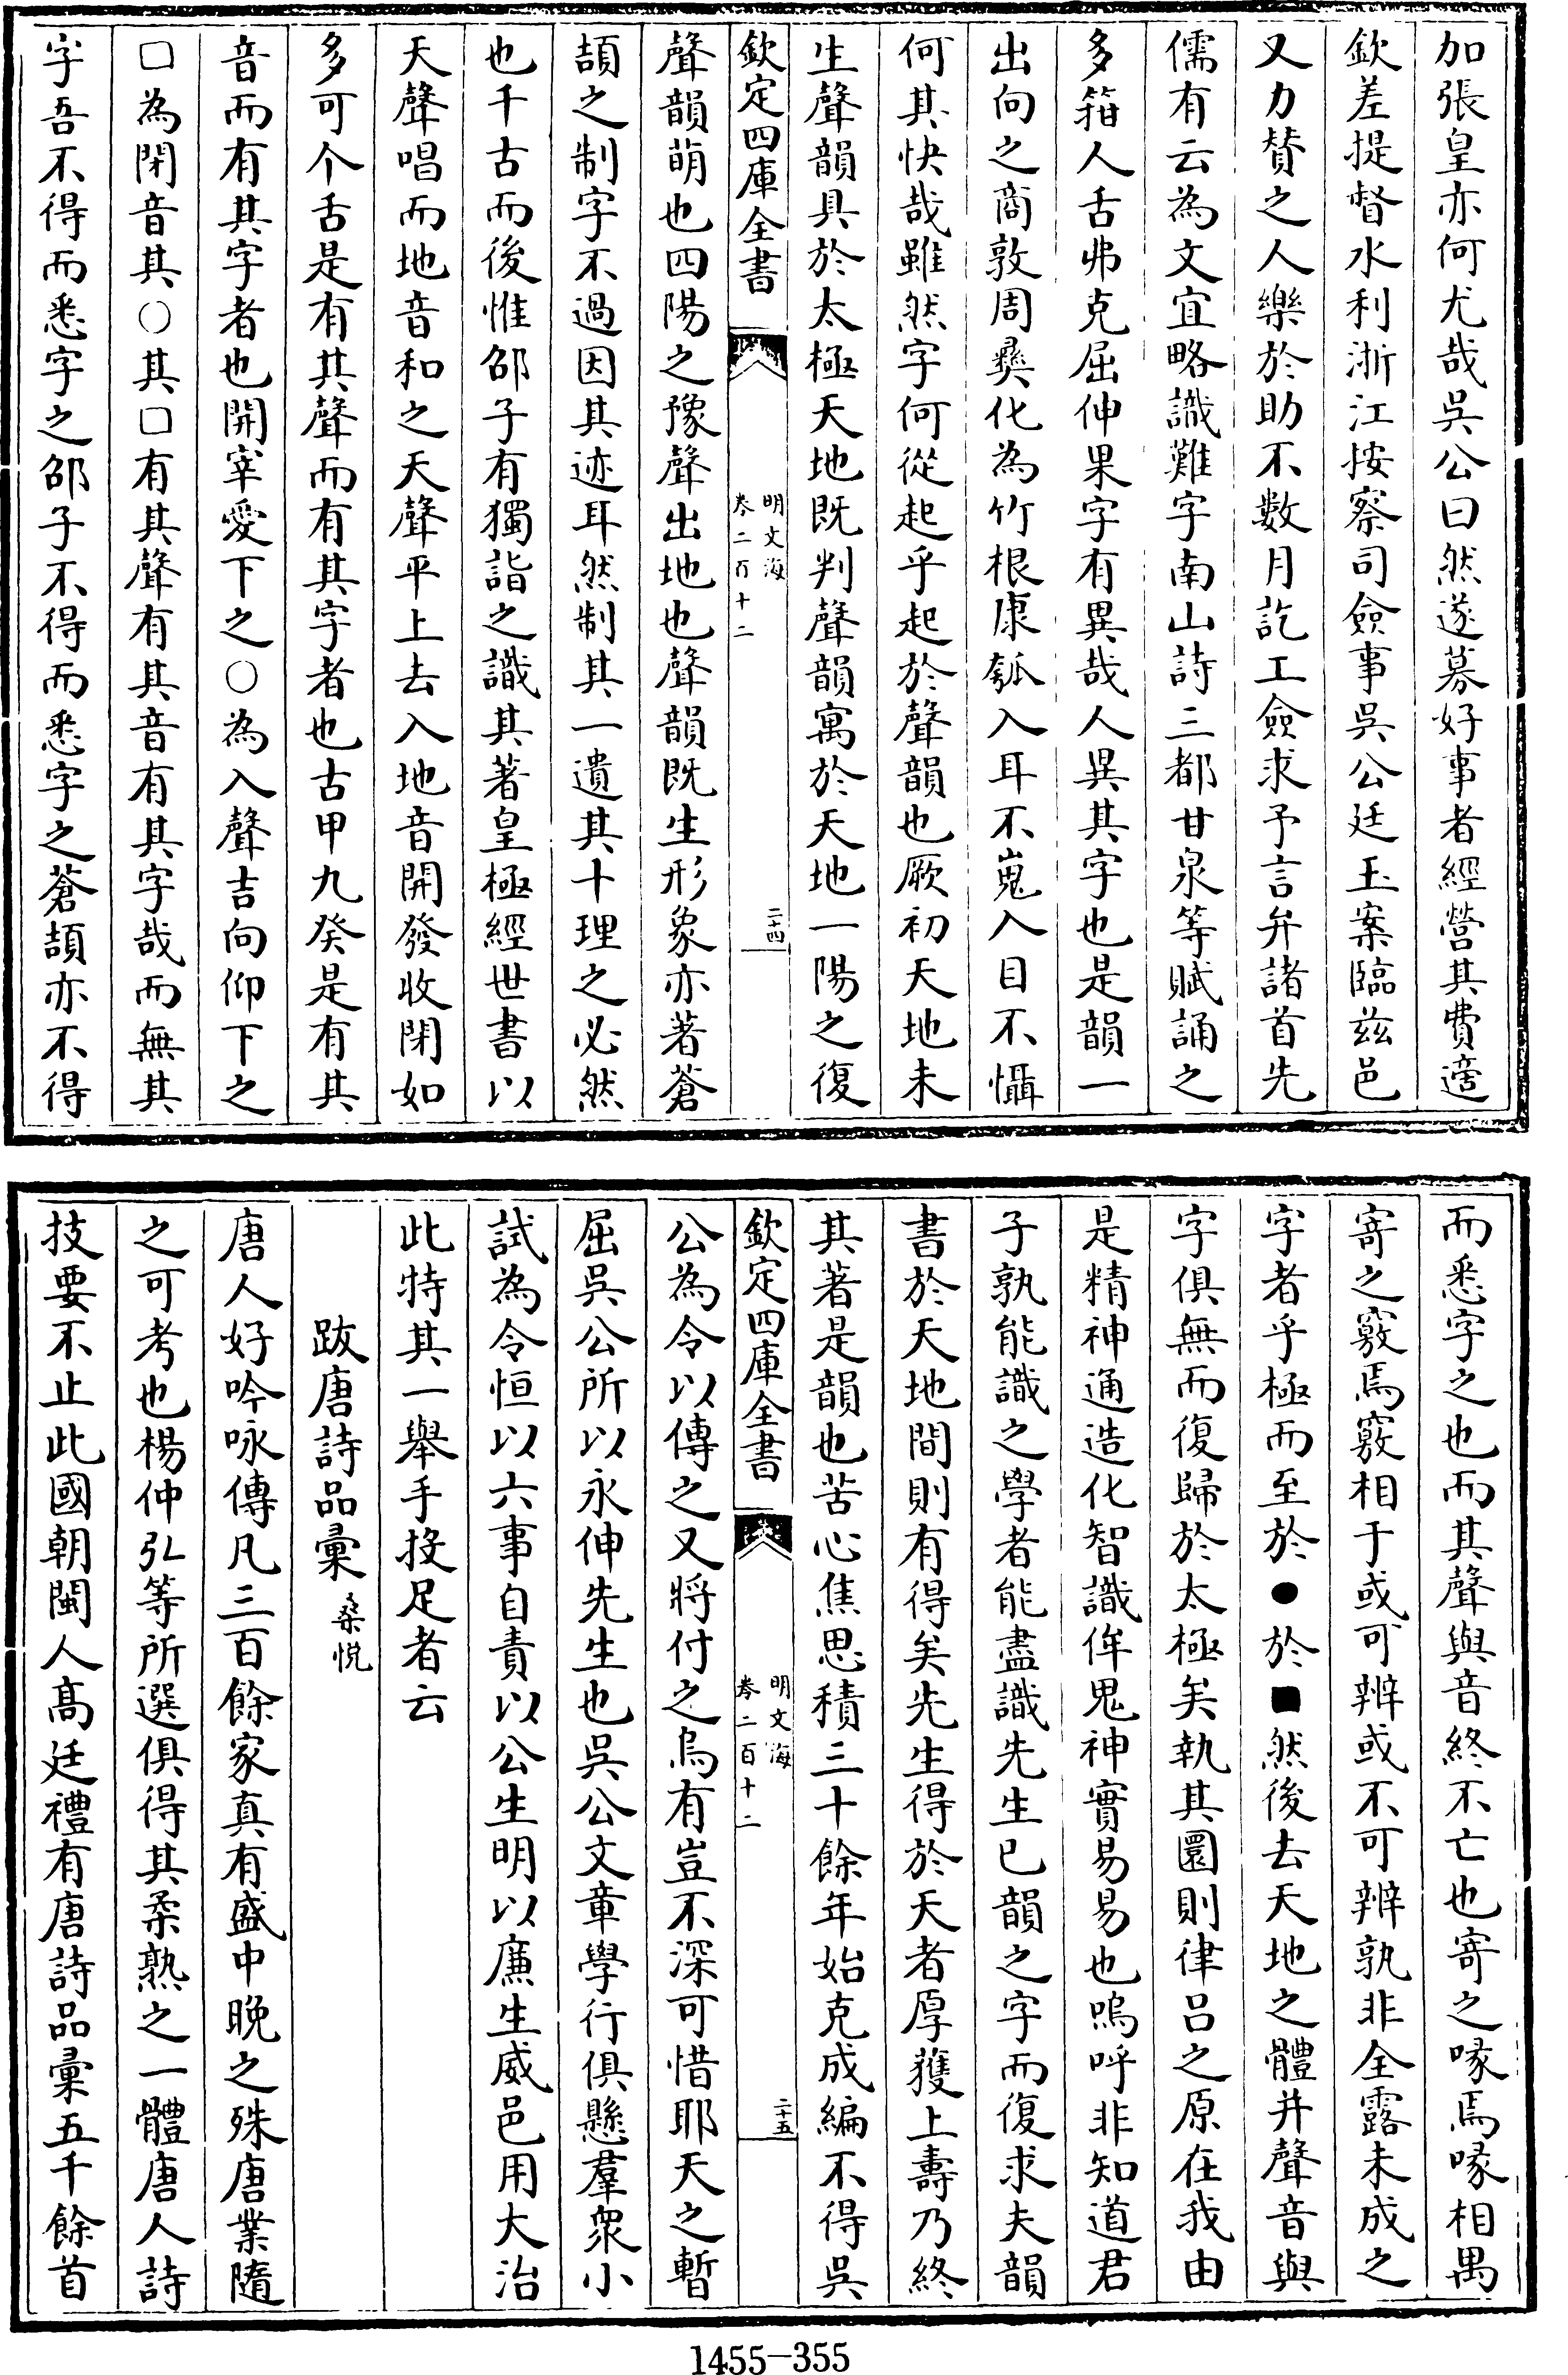 加張皇亦何尤哉吳公曰然遂募好事者經營其費適
欽差提督水利浙江按察司僉事吳公廷玉案臨兹邑
又力賛之人樂於助不數月訖工僉求予言弁諸首先
儒有云為文宜略識難字南山詩三都甘泉等賦誦之
多箝人舌弗克屈伸果字有異哉人異其字也是韻一
出向之商敦周彝化為竹根康瓠入耳不嵬入目不懾
何其快哉雖然字何從起乎起於聲韻也厥初天地未
生聲韻具於太極天地既判聲韻寓於天地一陽之復
欽定四庫全書
明文海
卷二百十二
二十四
聲韻萌也四陽之豫聲出地也聲韻既生形象亦著蒼
頡之制字不過因其迹耳然制其一遺其十理之必然
也千古而後惟邵子有獨詣之識其著皇極經世書以
天聲唱而地音和之天聲平上去入地音開發收閉如
多可个舌是有其聲而有其字者也古甲九癸是有其
音而有其字者也開宰愛下之○為入聲吉向仰下之
□為閉音其○其□有其聲有其音有其字哉而無其
字吾不得而悉字之邵子不得而悉字之蒼頡亦不得
而悉字之也而其聲與音終不亡也寄之喙焉喙相禺
寄之竅焉竅相于或可辨或不可辨孰非全露未成之
字者乎極而至於●於■然後去天地之體并聲音與
字俱無而復歸於太極矣執其圜則律呂之原在我由
是精神通造化智識侔鬼神實易易也嗚呼非知道君
子孰能識之學者能盡識先生已韻之字而復求夫韻
書於天地間則有得矣先生得於天者厚獲上壽乃終
其著是韻也苦心焦思積三十餘年始克成編不得吳
欽定四庫全書
明文海
卷二百十二
二十五
公為令以傳之又將付之烏有豈不深可惜耶天之暫
屈吳公所以永伸先生也吳公文章學行俱懸羣衆小
試為令恒以六事自責以公生明以廉生威邑用大治
此特其一舉手投足者云
跋唐詩品彙 桑悦
唐人好吟咏傳凡三百餘家真有盛中晚之殊唐業隋
之可考也楊仲弘等所選俱得其柔熟之一體唐人詩
技要不止此國朝閩人高廷禮有唐詩品彙五千餘首
1455-355